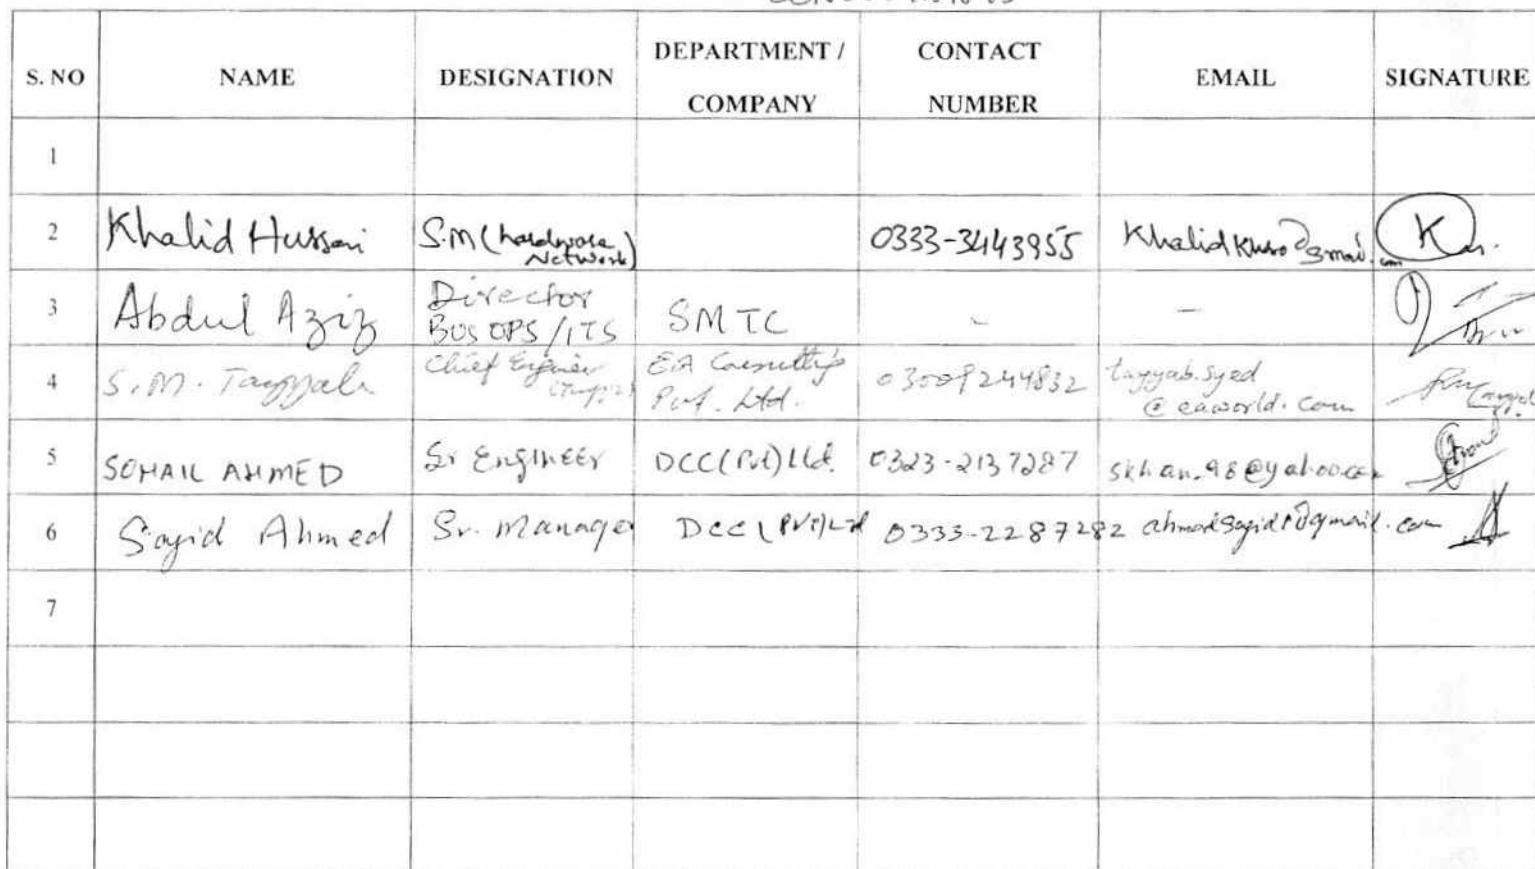 S. NO NAME DESIGNATION DEPARTMENT / COMPANY CONTACT NUMBER EMAIL SIGNATURE
1
2 Khalid Hussain S.M (hardware Network) 0333-3443955
3 Abdul Aziz Director BUS OPS/ITS SMTC - -
4 S.M. Tayyab Chief Engineer EA Consulting Pvt. Ltd. 03009244832 tayyab.syed @eaworld.com
5 SOHAIL AHMED Sr Engineer DCC(Pvt)Ltd. 0323-2137287 skhan_98@yahoo.com
6 Sajid Ahmed Sr. Manager DCC (PVT)Ltd 0333-2287282
7